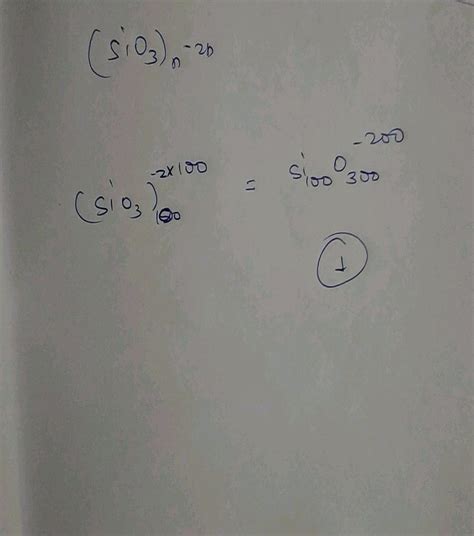 (SiO3)n^-2n
(SiO3)100^-2×100 = Si100O300^-200
1